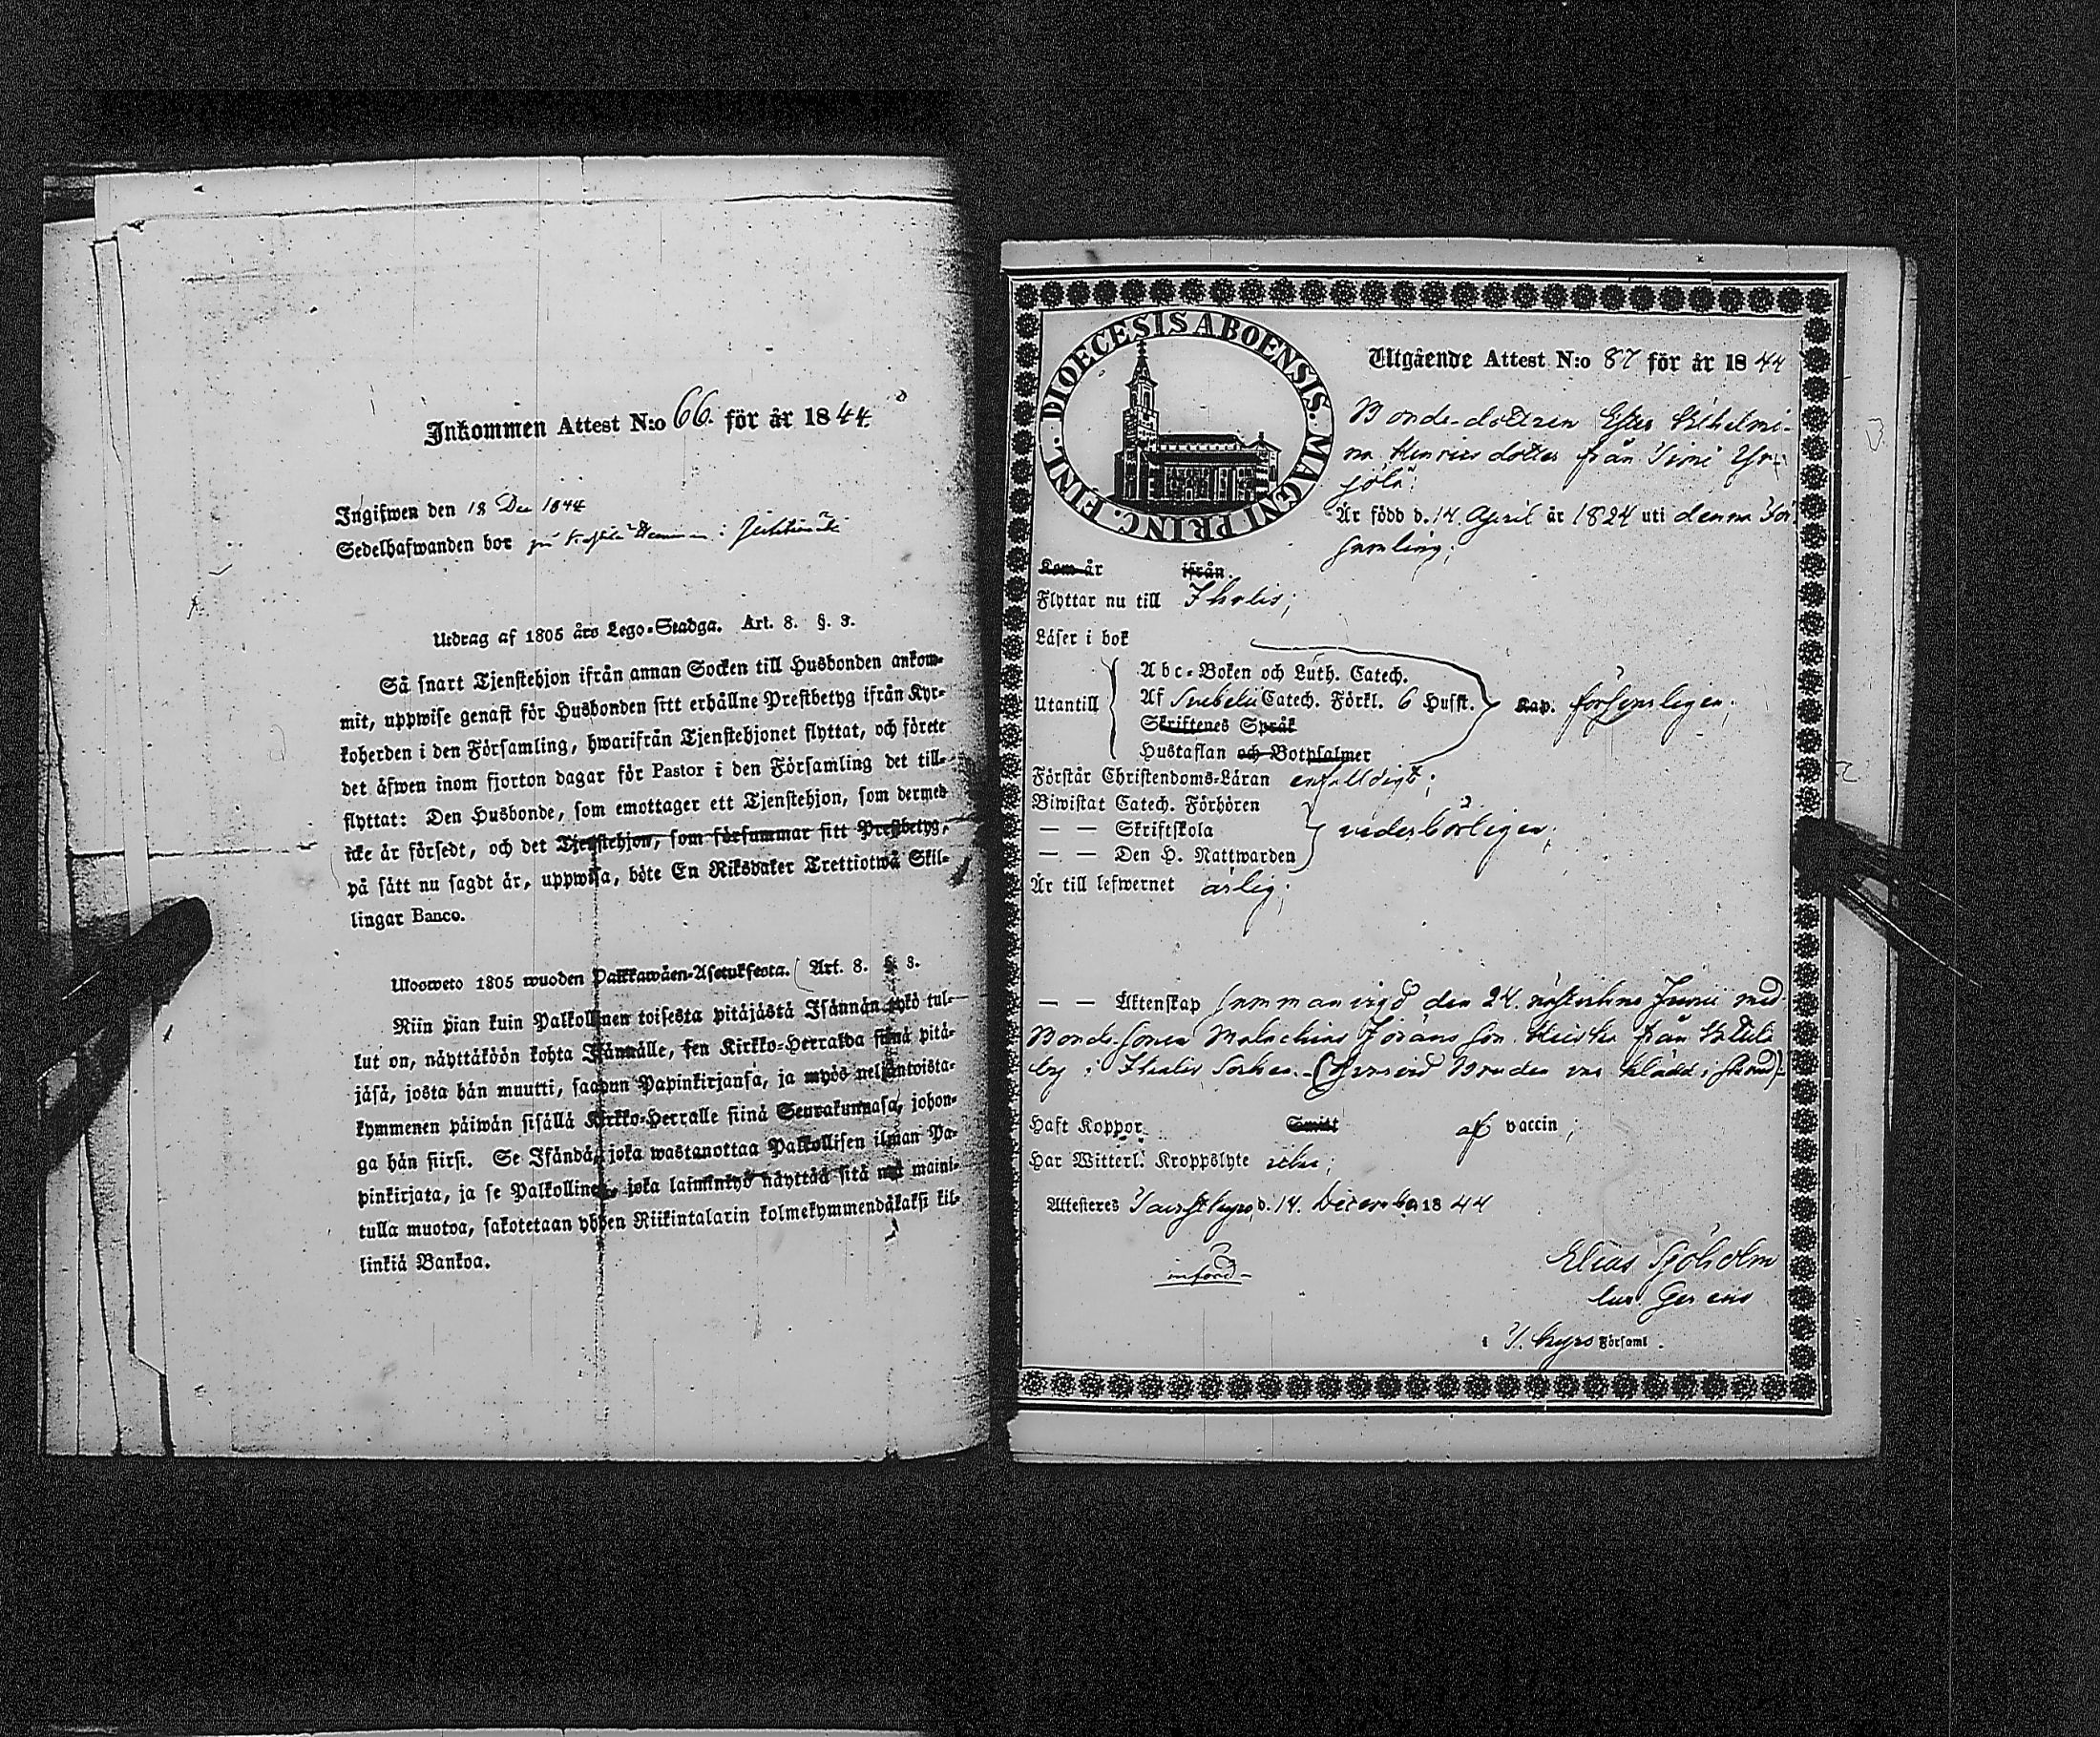 Inkommen Attest N:o 66. för år 1844.
Ingifwen den 18 Dec 1844
Sedelhafwanden bor
Utdrag af 1805 års Lego-Stadga. Art. 8. §. 3.
Så snart Tjenstehjon ifrån annan Socken till Husbonden ankom-
mit, uppwise genast för Husbonden sitt erhållne Prestbetyg ifrån Kyr-
koherden i den Församling, hwarifrån Tjenstehjonet flyttat, och förete
det äfwen inom fjorton dagar för Pastor i den Församling det till-
flyttat: Den Husbonde, som emottager ett Tjenstehjon, som dermed
icke är försedt, och det Tjenstehjon, som försummar sitt Prestbetyg,
på sätt nu sagdt är, uppwisa, böte En Riksdaler Trettiotwå Skil-
lingar Banco.
Ulosweto 1805 wuoden Palkkawäen-Asetuksesta. Art. 8. §. 3.
Niin pian kuin Palkollinen toisesta pitäjästä Isännän tykö tul-
lut on, näyttäköön kohta Isännälle, sen Kirkko-Herralda siinä pitä-
jäsä, josta hän muutti, saadun Papinkirjansa, ja myös neljäntoista-
kymmenen päiwän sisällä Kirkko-Herralle siinä Seurakunnasa, johon-
ga hän siirsi. Se Isändä, joka wastanottaa Palkollisen ilman Pa-
pinkirjata, ja se Palkollinen, joka laiminlyö näyttää sitä nyt maini-
tulla muotoa, sakotetaan yhden Riikintalarin kolmekymmendäkaksi kil-
linkiä Bankoa.
DIOECESIS ABOENSIS. MAGNI PRINC. FINL.
Utgående Attest N:o 87 för år 1844
Bonde-dottren Ester Wilhelmi-
na Henricsdotter från
Är född d. 14 April år 1824 uti denna För-
samling;
Kom år ifrån
Flyttar nu till Ikalis;
Läser i bok
Abc-Boken och Luth. Catech.
Utantill Af Svebelii Catech. Förkl. 6 Hufst. Kap. försvarligen;
Skriftenes Språk
Hustaflan och Botpsalmer
Förstår Christendoms-Läran enfalldigt;
Biwistat Catech. Förhören
— — Skriftskola vederbörligen;
— — Den H. Nattwarden
Är till lefwernet ärlig;
— — Äktenskap sammanvigd den 24. Junii med
Bonde-sonen Malachias Göransson från
by i Ikalis Socken. Bruden var klädd i skrud)
Haft Koppor Smitt af vaccin;
Har Witterl. Kroppslyte utan;
Attesteres Tavastkyro, d. 14. December 1844
införd
Elias Sjöholm
i T. Kyro Församl.